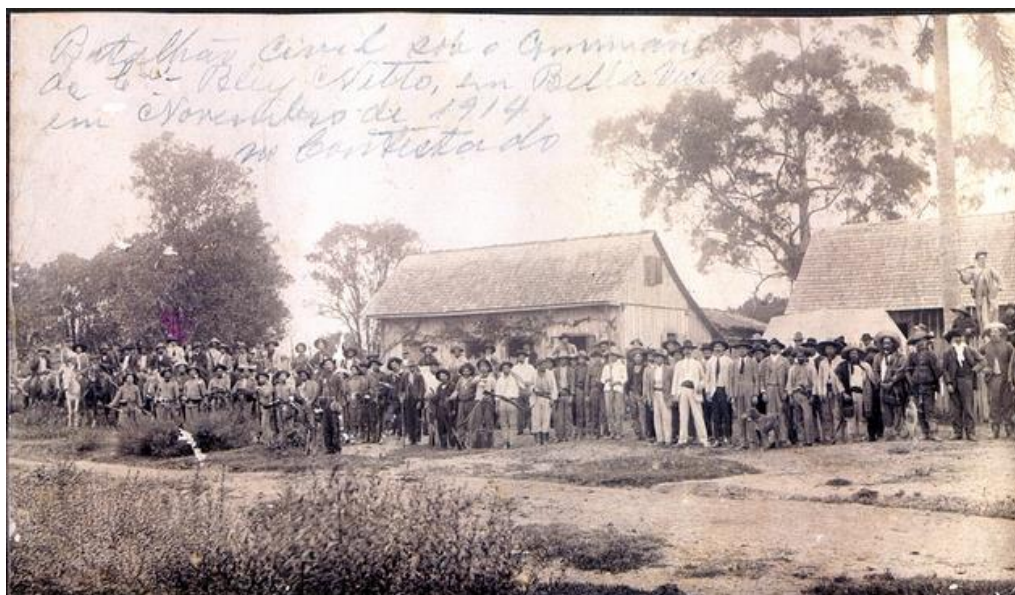 Batalhão civil sob o Commando
de Cel Bley Netto, em Bella Vista
em Novembro de 1914,
no Contestado